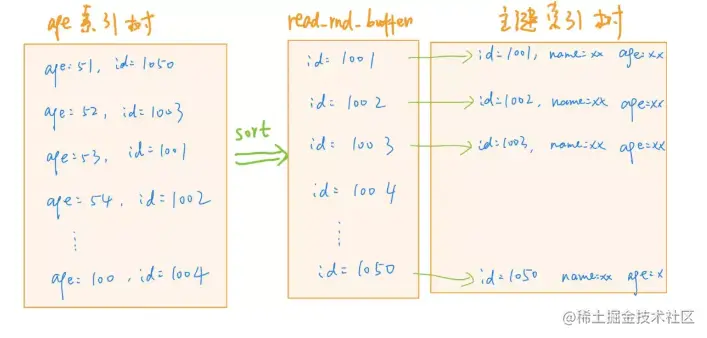 age 索引树
age=51, id=1050
age=52, id=1003
age=53, id=1001
age=54, id=1002
⋮
age=100, id=1004
sort
read_rnd_buffer
id=1001
id=1002
id=1003
id=1004
⋮
id=1050
主键索引树
id=1001, name=xx age=xx
id=1002, name=xx age=xx
id=1003, name=xx age=xx
id=1050 name=xx age=x
@稀土掘金技术社区